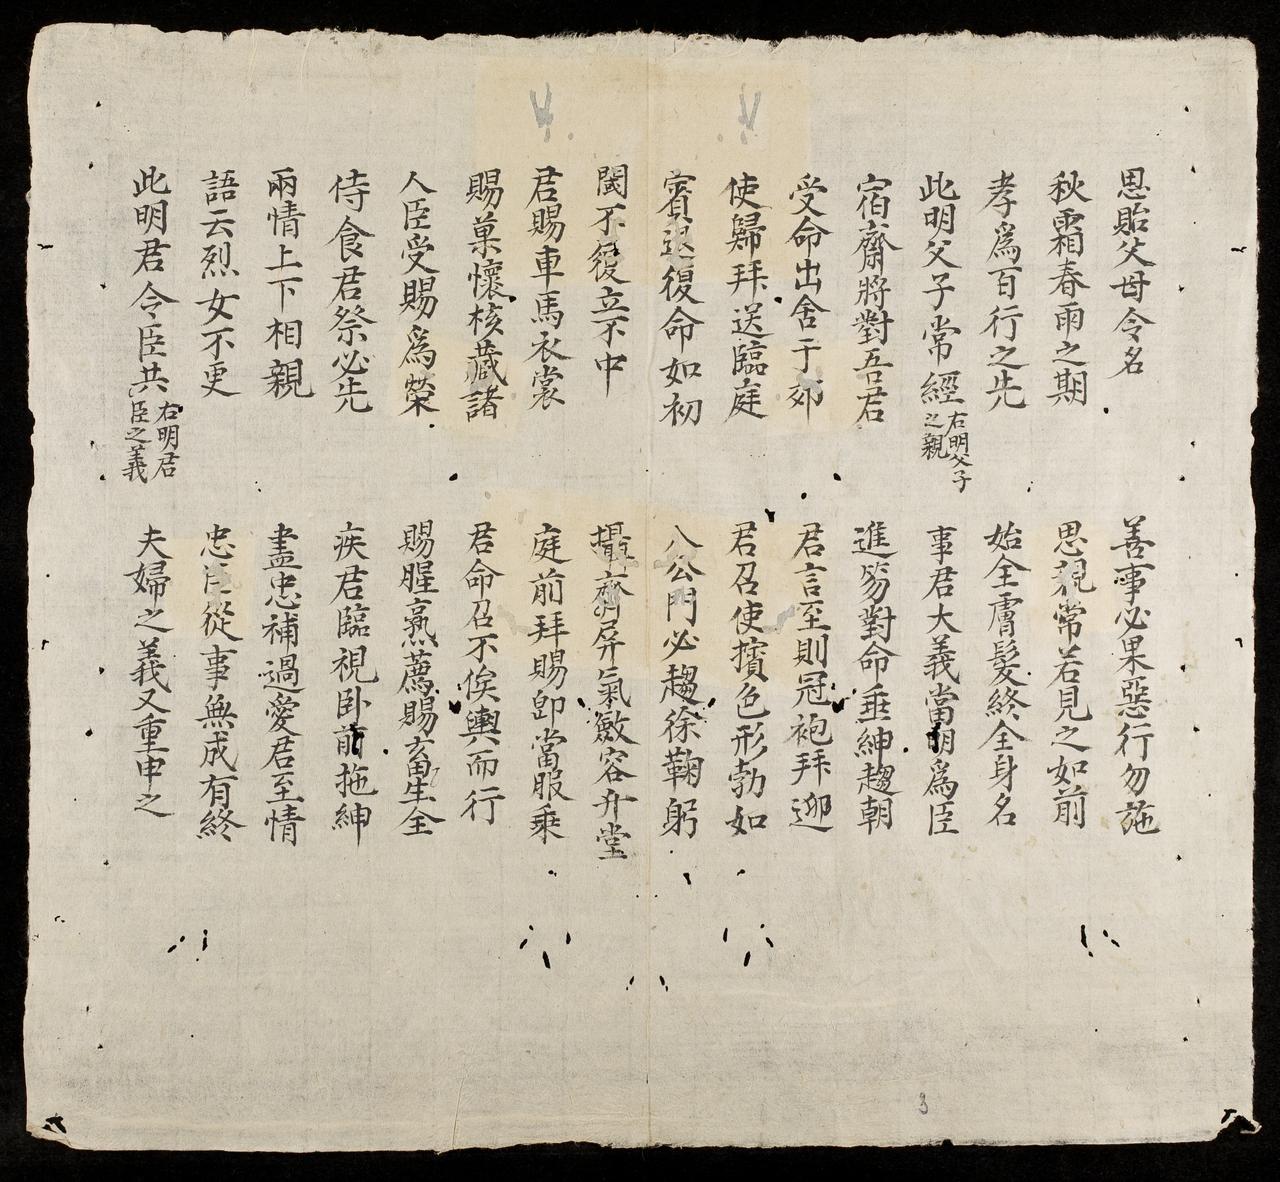 思貽父母令名
善事必果惡行勿施
秋霜春雨之期
思親常若見之如前
孝爲百行之先
始全膚髮終全身名
此明父子常經右明父子之親
事君大義當明爲臣
宿齋將對吾君
進笏對命垂紳趨朝
受命出舍于郊
君言至則冠袍拜迎
使歸拜送臨庭
君召使擯色形勃如
賓退復命如初
入公門必趨徐鞠躬
閾不復立不中
攝齊屏氣斂容升堂
君賜車馬衣裳
庭前拜賜卽當服乘
賜菓懷核藏諸
君命召不俟輿而行
人臣受賜爲榮
賜腥熟薦賜畜生全
侍食君祭必先
疾君臨視卧前拖紳
兩情上下相親
盡忠補過愛君至情
語云烈女不更
忠臣從事無成有終
此明君令臣共右明君臣之義
夫婦之義又重申之
3